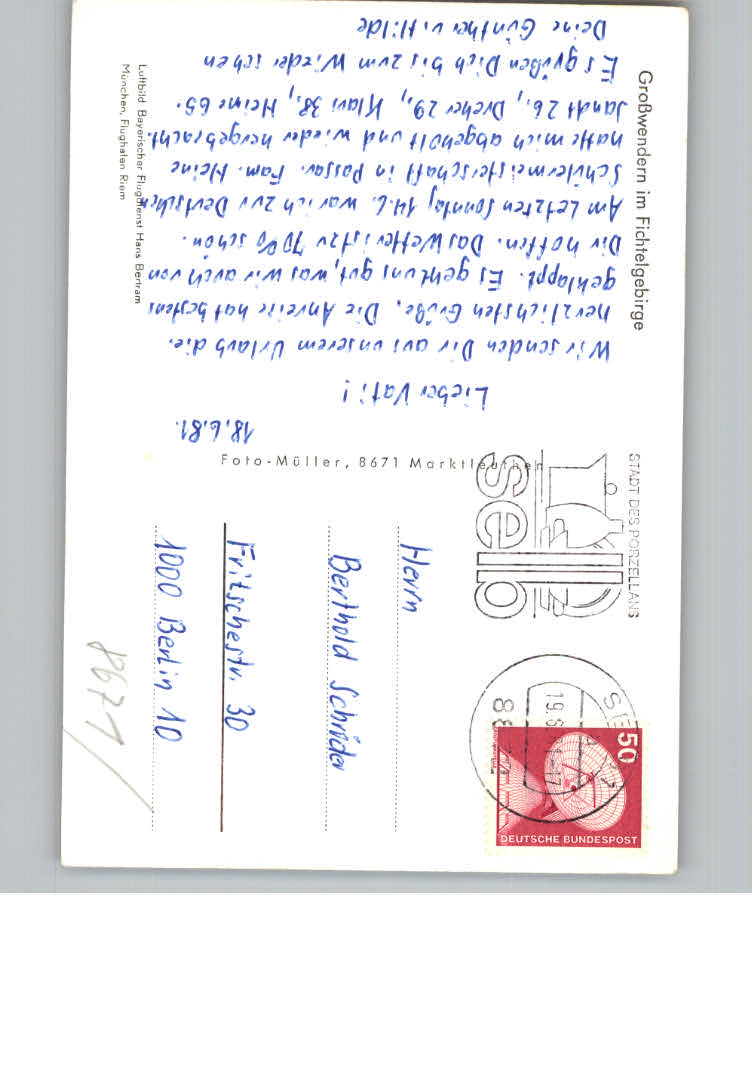 Großwendern im Fichtelgebirge
18.6.81.
Lieber Vati!
Wir senden Dir aus unserem Urlaub die
herzlichsten Grüße. Die Anreise hat bestens
geklappt. Es geht uns gut, was wir auch von
Dir hoffen. Das Wetter ist zu 70% schön.
Am Letzten Sonntag 14.6. war ich zur Deutschen
Schülermeisterschaft in Passau. Fam. Heine
hatte mich abgeholt und wieder hergebracht.
Jandt 26., Dreher 29., Klavi 38., Heine 65.
Es grüßen Dich bis zum Wiedersehen
Deine Günther u. Hilde
Luftbild Bayerischer Flugdienst Hans Bertram
München, Flughafen Riem
Foto-Müller, 8671 Marktleuthen
Herrn
Berthold Schröder
Fritschestr. 30
1000 Berlin 10
STADT DES PORZELLANS
selb
50
DEUTSCHE BUNDESPOST
8671